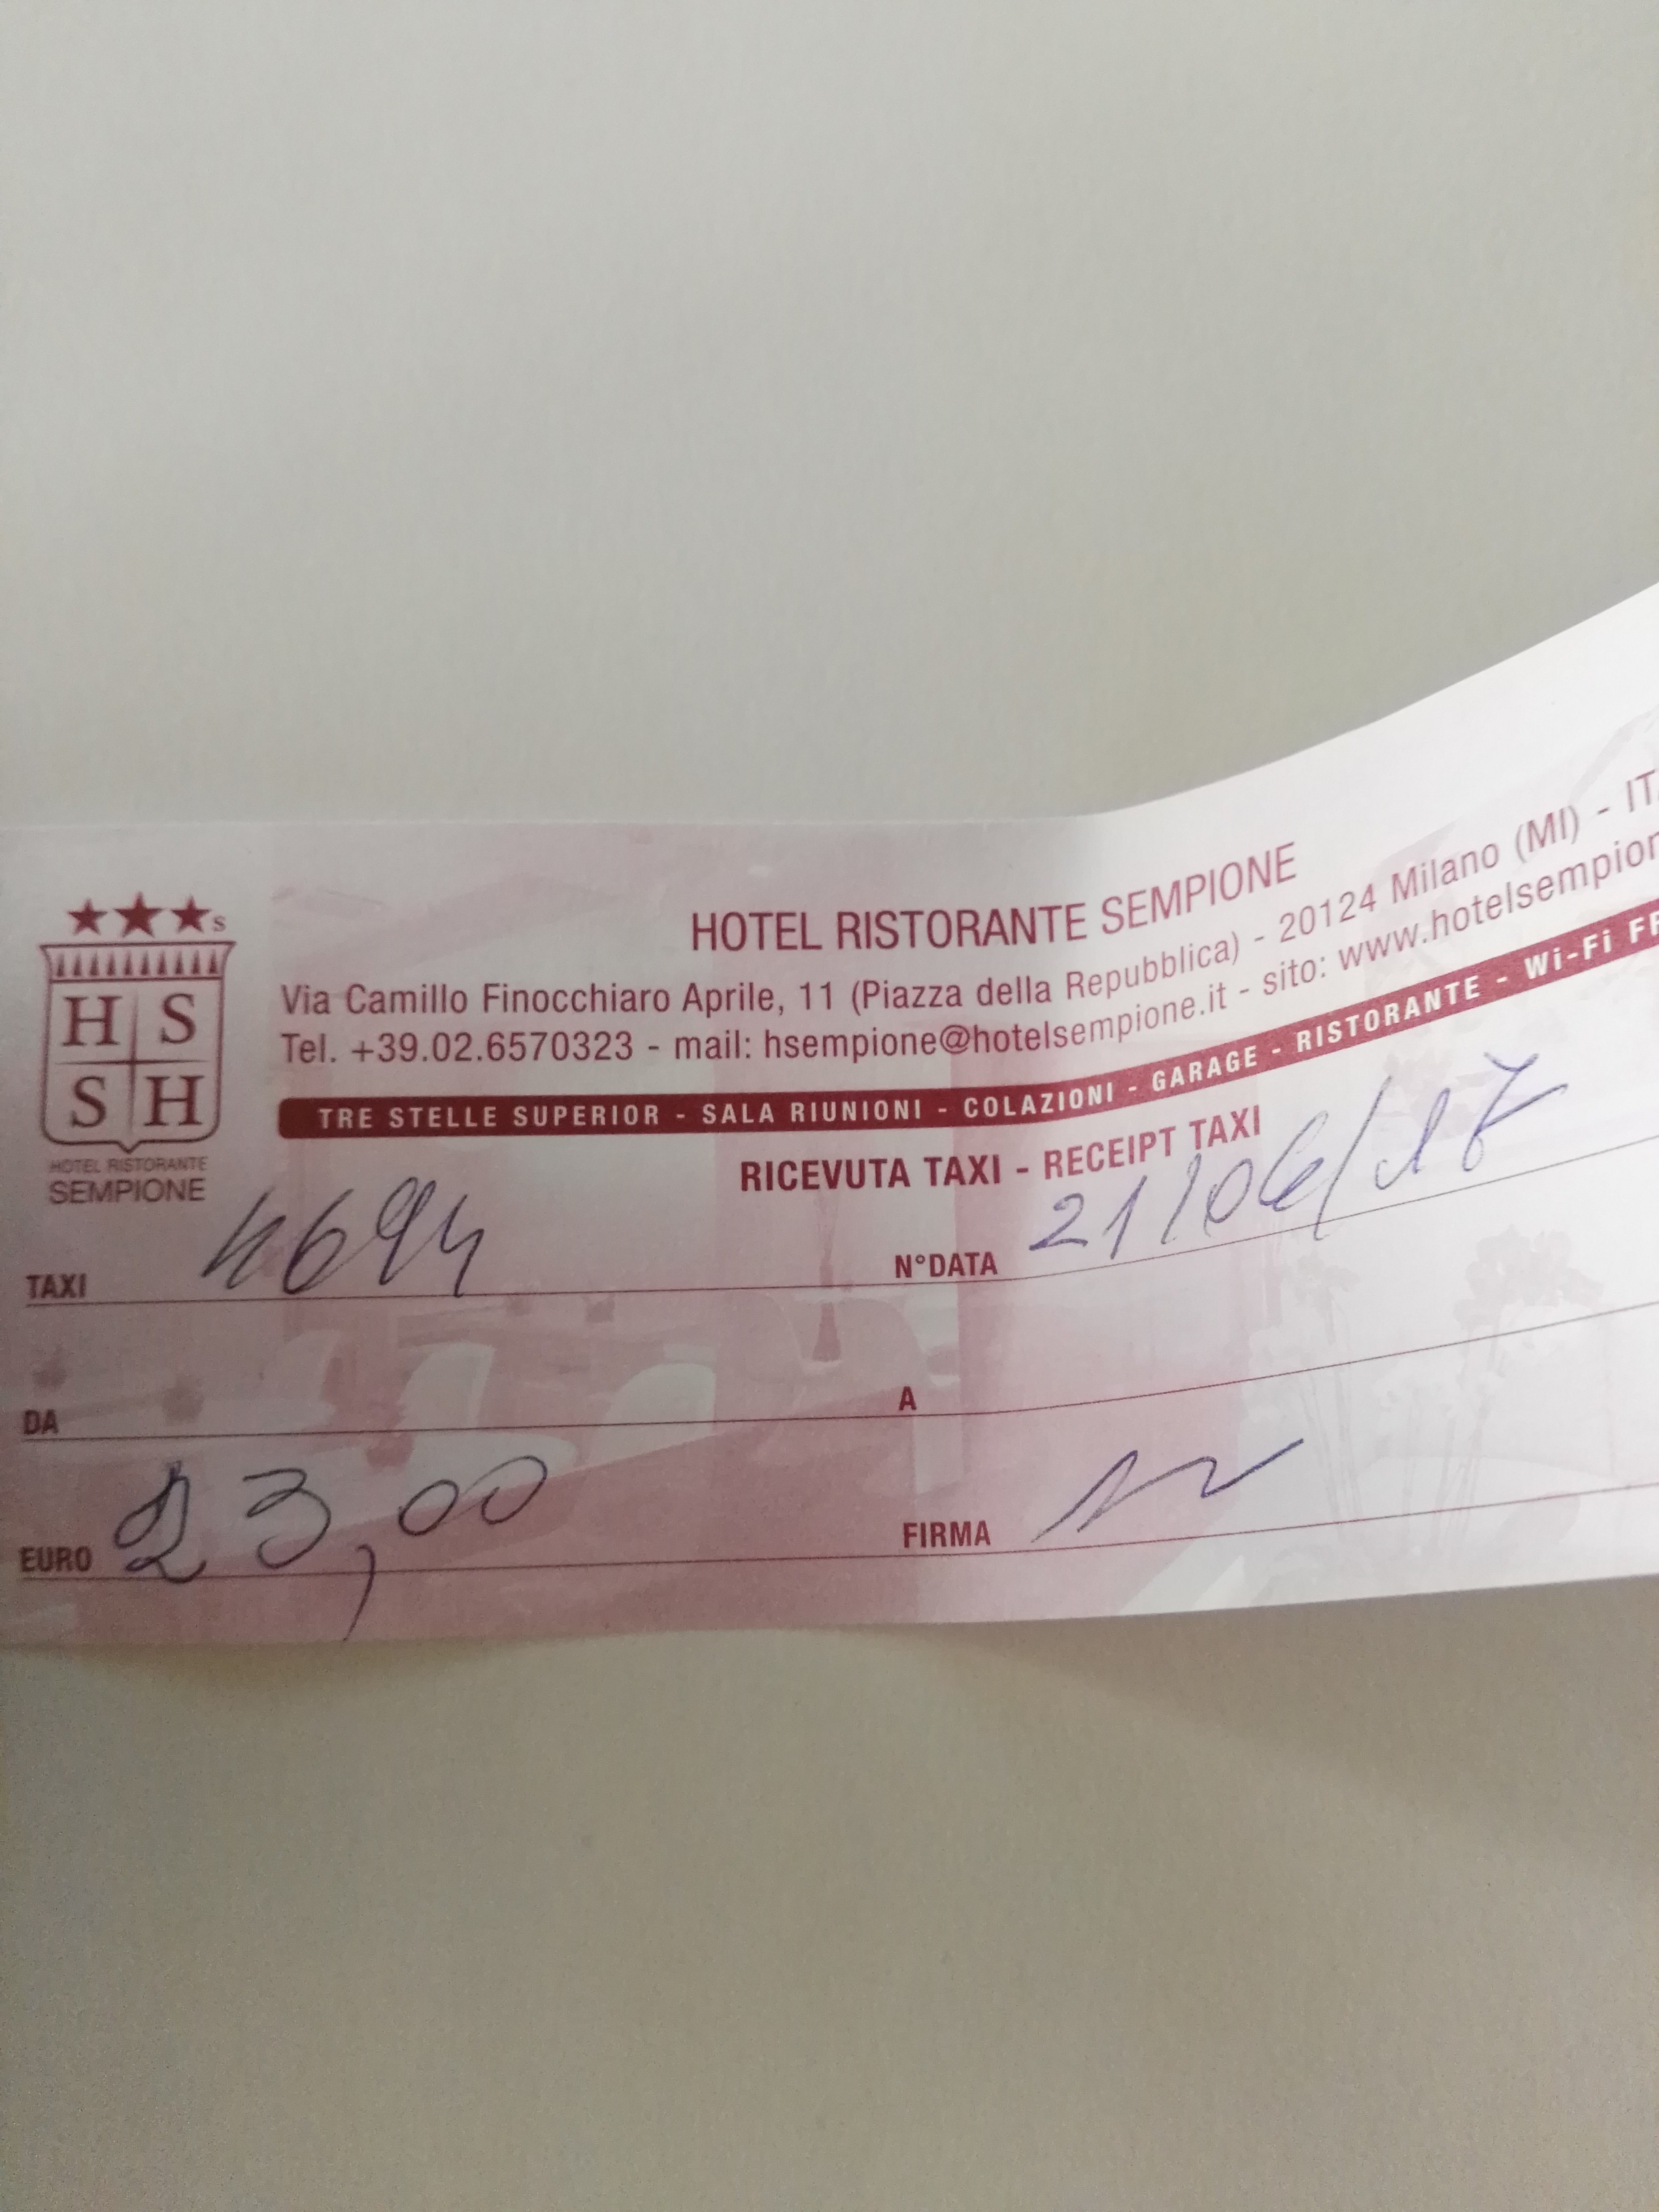 ★★★s
H S
S H
HOTEL RISTORANTE
SEMPIONE
HOTEL RISTORANTE SEMPIONE
Via Camillo Finocchiaro Aprile, 11 (Piazza della Repubblica) - 20124 Milano (MI) -
Tel. +39.02.6570323 - mail: hsempione@hotelsempione.it - sito:
TRE STELLE SUPERIOR - SALA RIUNIONI - COLAZIONI - GARAGE - RISTORANTE - Wi-Fi
RICEVUTA TAXI - RECEIPT TAXI
TAXI N°DATA 21/06/17
DA A
EURO 23,00 FIRMA